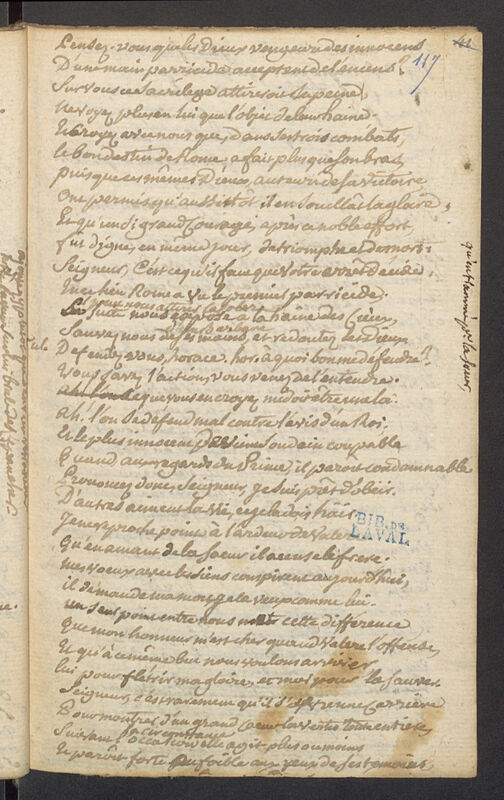 117
Pensez-vous que les Dieux vengeurs des innocens
D'une main parricide acceptent de l'encens?
Sur vous ce sacrilege attireroit sa peine
Ne voyez plus en lui que l'objet de leur haine
Et croyez avec nous que, dans ses trois combats,
le bon destin de Rome a fait plus que son bras,
puisque ces mêmes Dieux, auteurs de sa victoire
Ont permis qu'aussitôt il en souillât la gloire,
Et qu'un si grand Courage, après ce noble effort,
fut digne, en même jour, de triomphe et de mort.
Seigneur, C'est ce qu'il faut que votre arrêt décide,
En ce lieu Rome a vu le premier parricide.
La suite à la haine des Cieux
Sauvez nous de sa main, et redoutez les Dieux
Défendez vous, horace. hor. a quoi bon me défendre?
Vous savez l'action, vous venez de l'entendre.
que vous en croyez me doit être une loi.
Ah! l'on se défend mal contre l'avis d'un Roi.
Et le plus innocent devient soudain coupable
Quand aux regards du Prince, il paroit condamnable
Prononcez donc, Seigneur, je suis prêt d'obéir.
D'autres aiment la vie, et je la dois haïr.
Je ne reproche point à l'ardeur de Valere
Qu'en amant de la soeur il accuse le frere.
mes voeux avec les siens conspirent aujourd'hui,
il demande ma mort, je la veux comme lui.
un seul point entre nous met cette difference
Que mon honneur m'est cher quand Valere l'offense,
Et qu'à ce même but nous voulons arriver
lui pour flétrir ma gloire, et moi pour la sauver.
Seigneur, c'est rarement qu'il s'offre une Carrière
Pour montrer d'un grand Coeur la vertu toute entiere,
la circonstance
Suivant l'occasion elle agit plus ou moins
Et paroit forte ou foible aux yeux de ses témoins,
BIB. DE
LAVAL